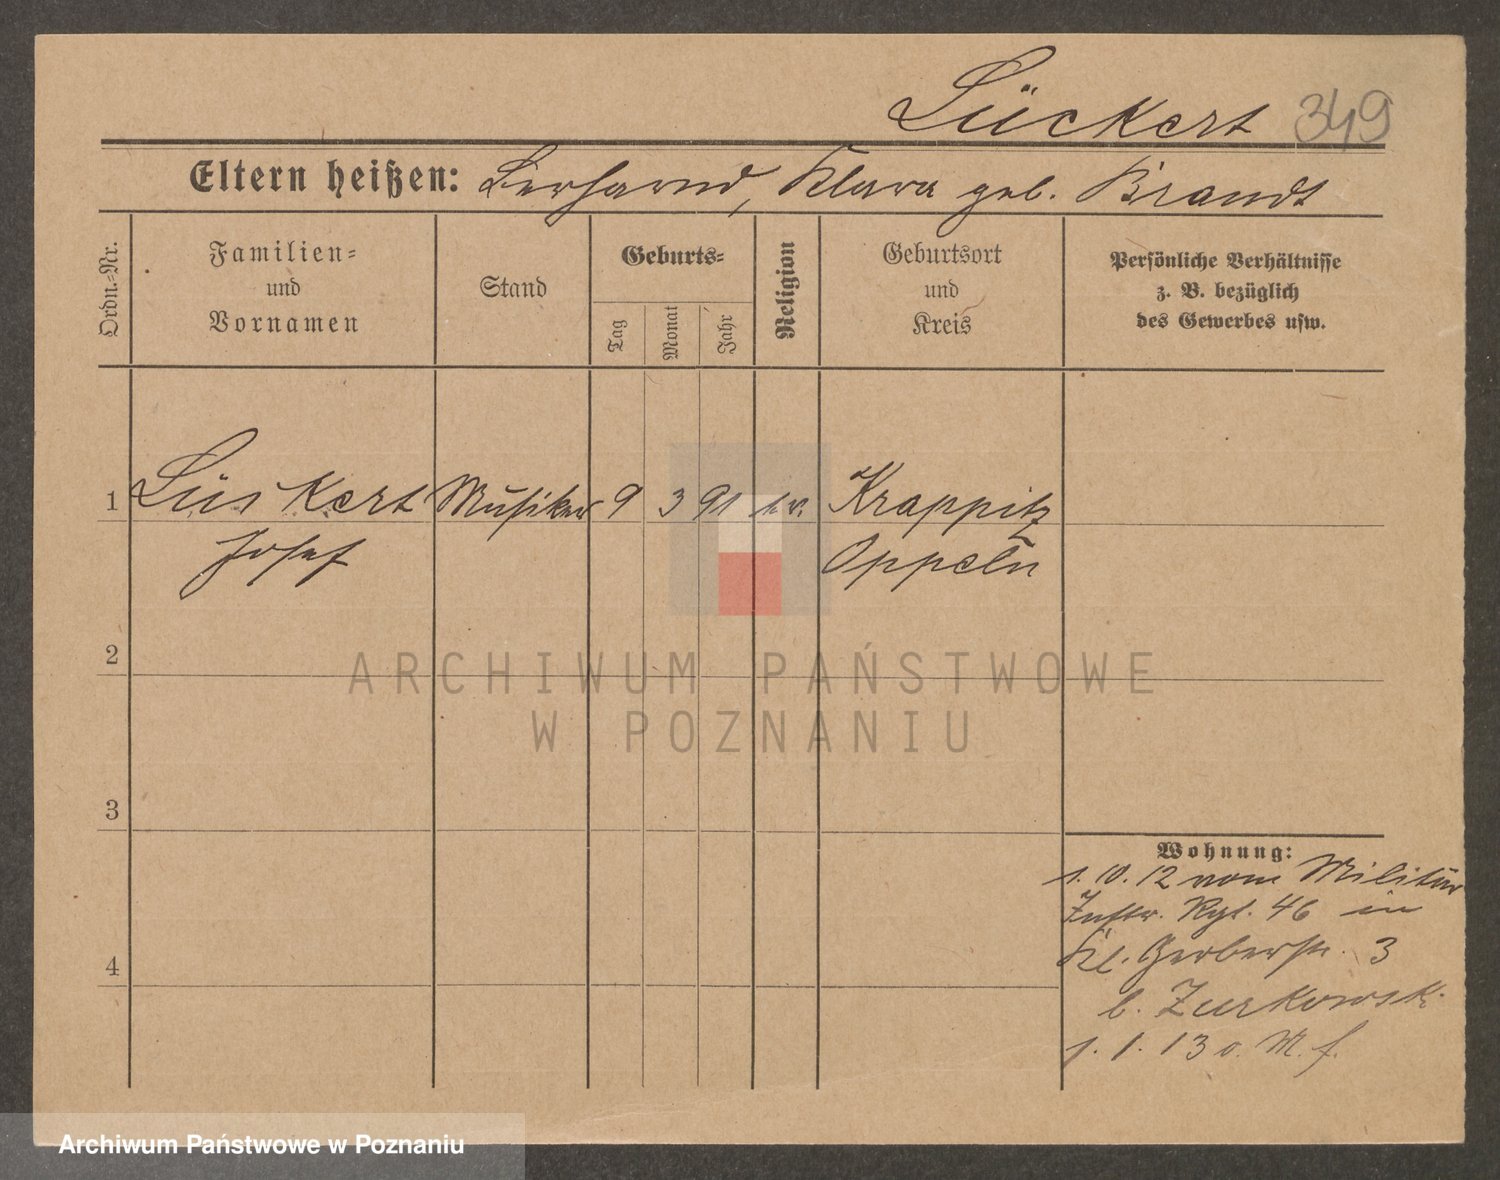 Lückert 349
Eltern heißen: Berhard, Klara geb. Brandt
Ordn.-Nr.
Familien-
und
Vornamen
Stand
Geburts-
Tag
Monat
Jahr
Religion
Geburtsort
und
Kreis
Persönliche Verhältnisse
z. B. bezüglich
des Gewerbes usw.
1 Lückert Musiker 9 3 91 Krappitz
Josef Oppeln
2
3
4
Wohnung:
1. 10. 12 vom Militär
Inftr. Rgt. 46 in
Kl. Gerberstr. 3
b. Zurkowsk.
1. 1. 13 o. M. f.
ARCHIWUM PAŃSTWOWE
W POZNANIU
Archiwum Państwowe w Poznaniu